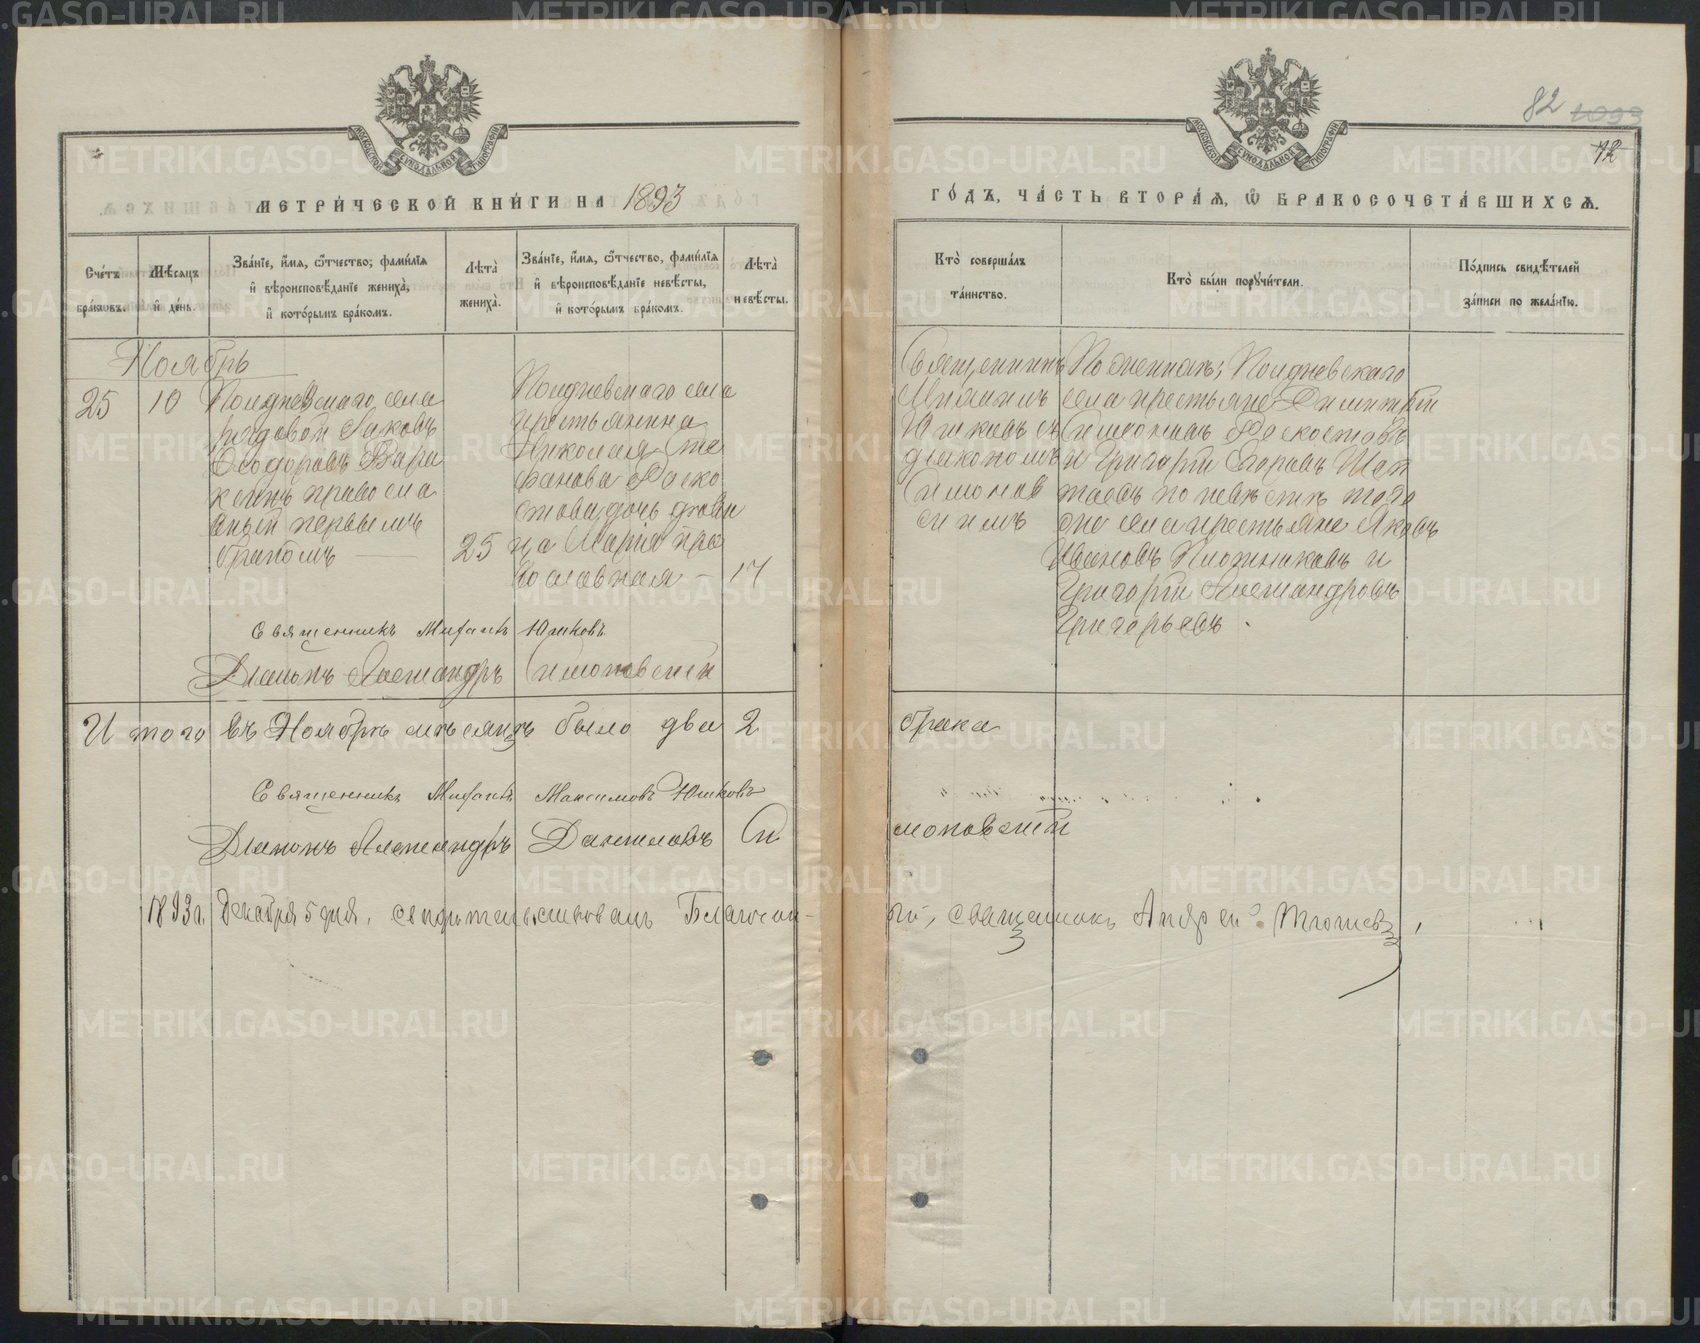 МЕТРИ́ЧЕСКОЙ КНИ́ГИ НА 1893
ГО́ДЪ, ЧА́СТЬ ВТОРА́Я, Ѡ҆ БРАКОСОЧЕТА́ВШИХСѦ.
82
72
Сче́тъ бра́ковъ.
Мѣ́сяцъ и҆ де́нь.
Зва́нїе, и҆́мя, ѻ҆́тчество, фами́лїя и҆ вѣроисповѣ́данїе жениха̀, и҆ кото́рымъ бра́комъ.
Лѣта̀ жениха̀.
Зва́нїе, и҆́мя, ѻ҆́тчество, фами́лїя и҆ вѣроисповѣ́данїе невѣ́сты, и҆ кото́рымъ бра́комъ.
Лѣта̀ невѣ́сты.
Кто̀ соверша́лъ та́инство.
Кто̀ бы́ли порꙋчи́тели.
По́дпись свидѣ́телей за́писи по жела́нїю.
Ноябрь
25
10
Полдневскаго села
рядовой Іаковъ
Ѳеодоровъ
православный первымъ
бракомъ
25
Полдневскаго села
крестьянина
Николая Сте
фанова Раско
стова дочь девица
Марія пра
вославная
17
Священникъ
Михаилъ
Юшковъ съ
діакономъ
Симонов
скимъ
По женихѣ; Полдневскаго
села крестьяне Димитрій
Симоновъ Раскостовъ
и Григорій Егоровъ
по невѣстѣ того
оне села крестьяне Яковъ
Ивановъ Плотниковъ и
Григорій Александровъ
Григорьевъ.
Священникъ Михаилъ Юшковъ
Діаконъ Александръ Симоновскій
Итого въ Ноябрѣ мѣсяцѣ было два 2 брака
Священникъ Михаилъ Максимовъ Юшковъ
Діаконъ Александръ Даниловъ Симоновскій
1893 г. Декабря 5 дня, свидѣтельствовалъ Благочинный, священникъ Андрей